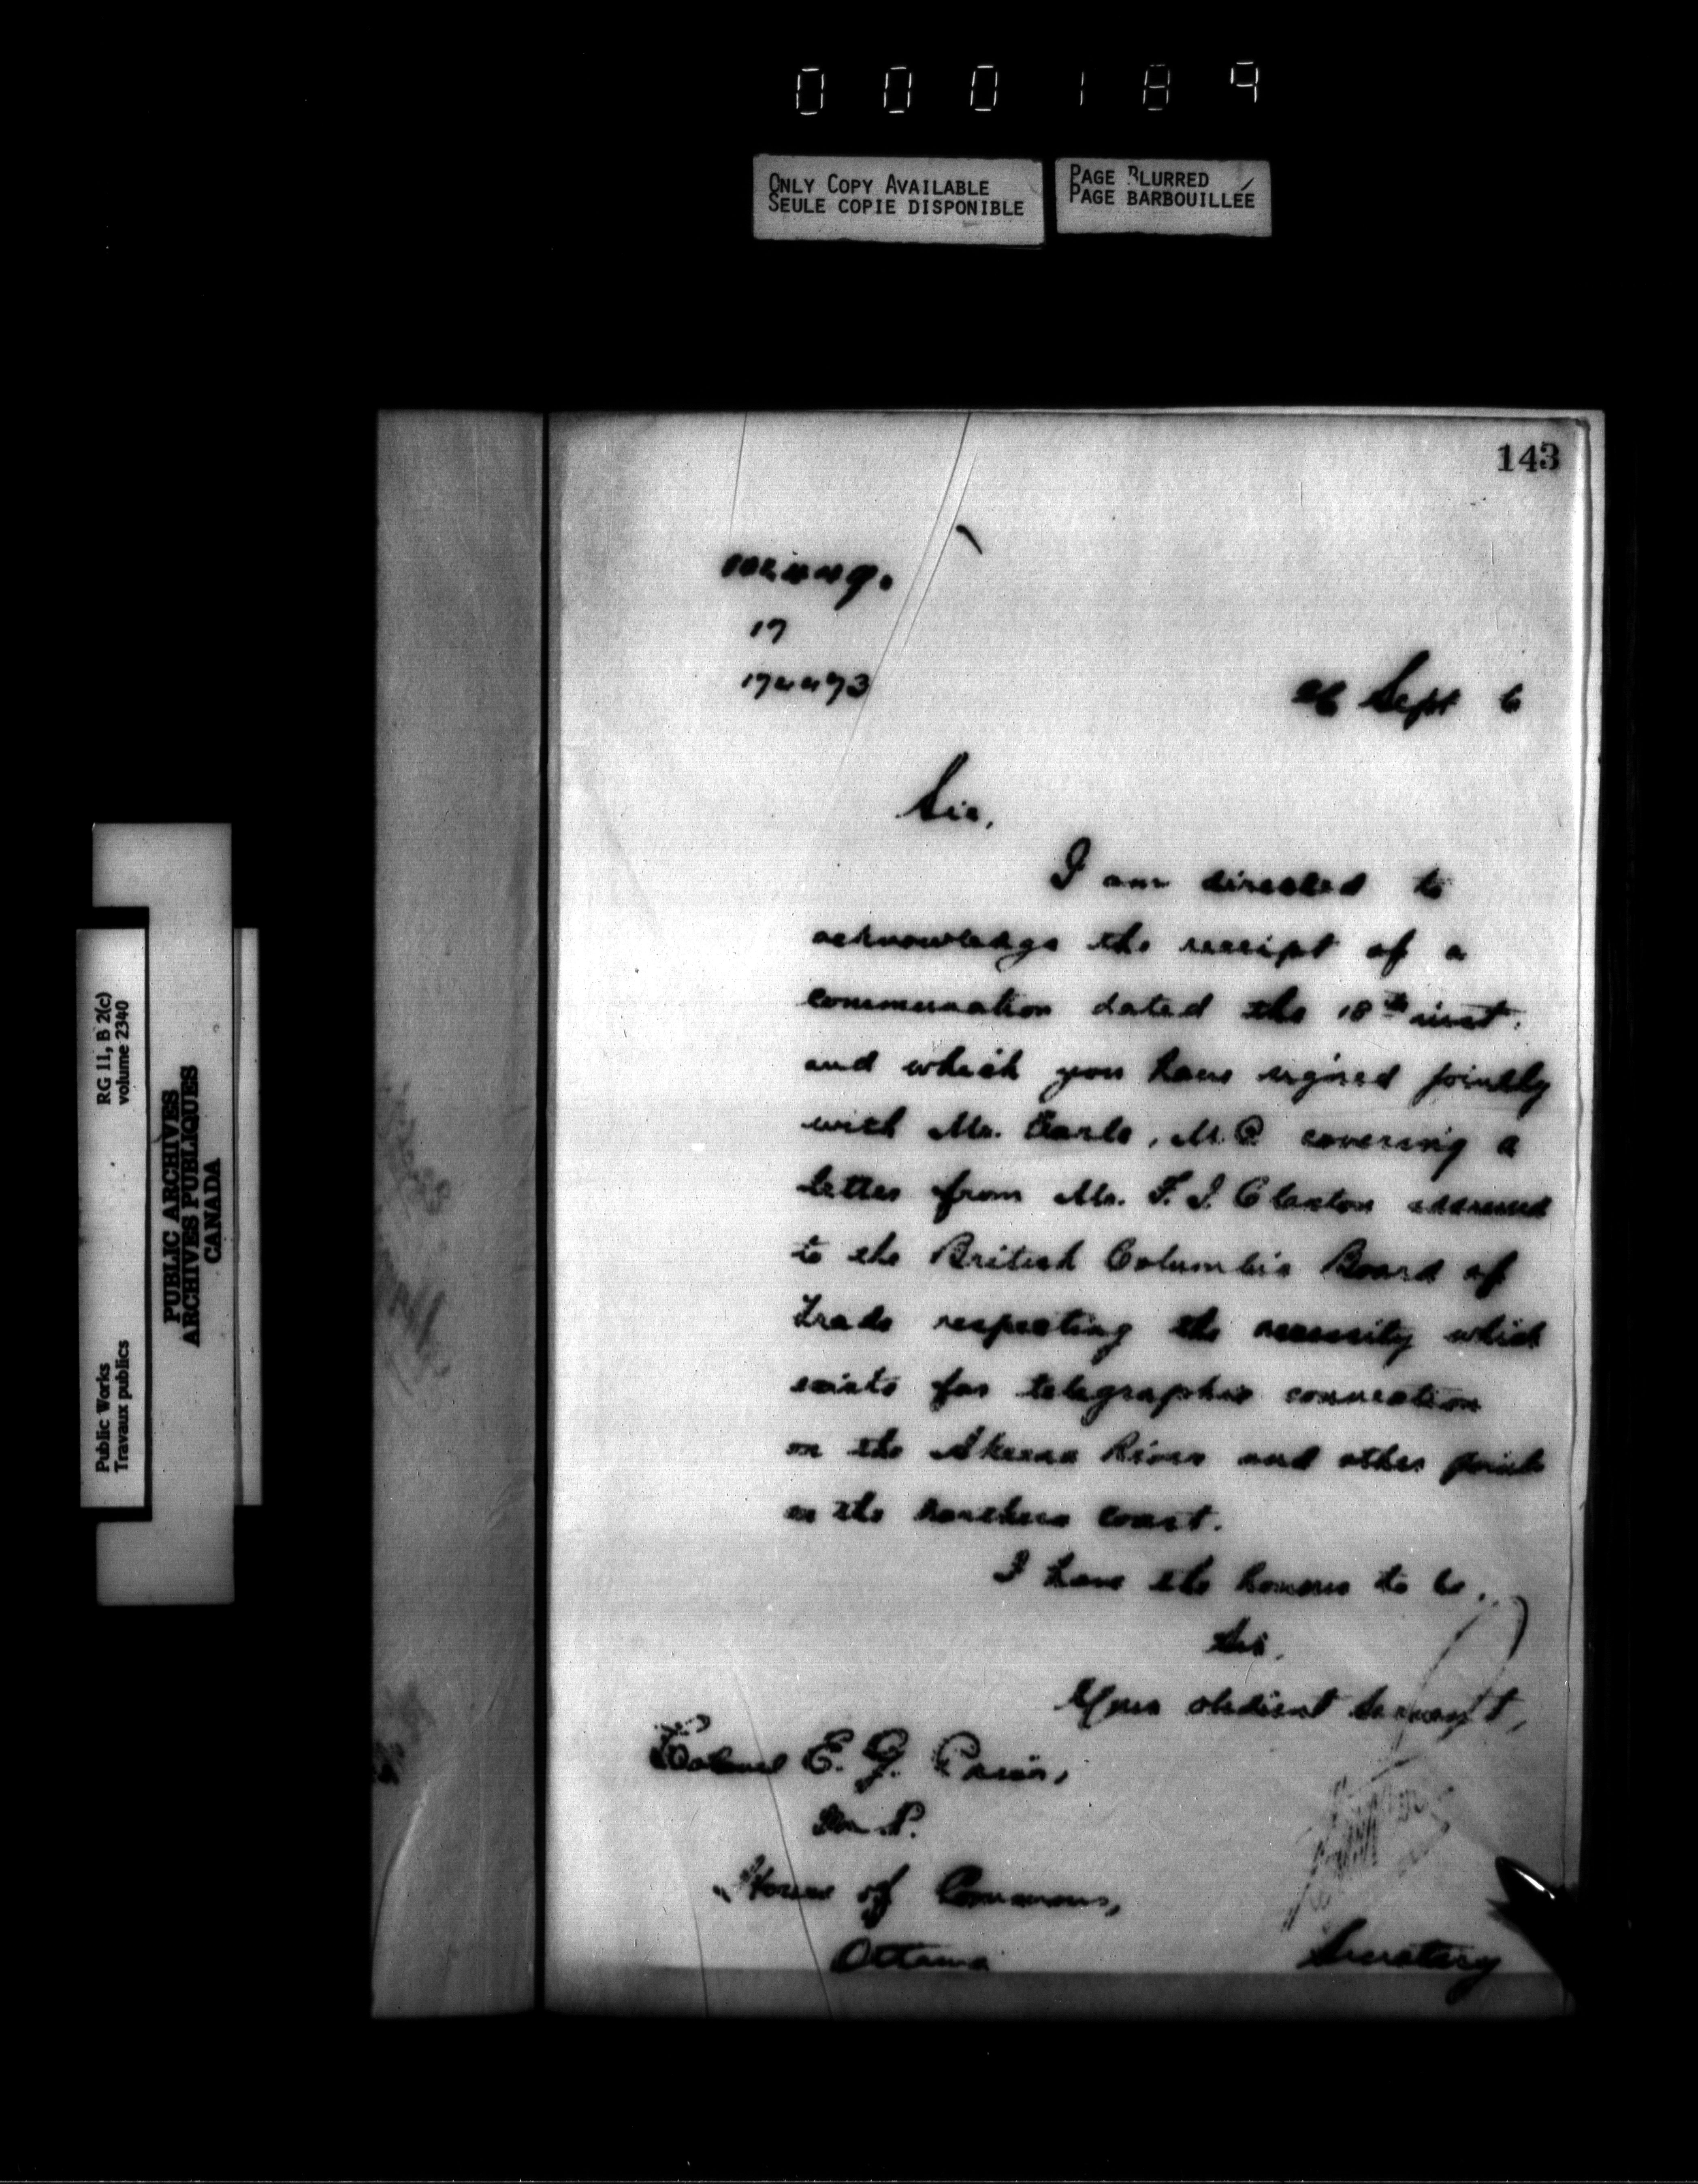 000189
ONLY COPY AVAILABLE
SEULE COPIE DISPONIBLE
PAGE BLURRED
PAGE BARBOUILLÉE
143
17
26 Sept 6
Sir,
I am directed to
acknowledge the receipt of a
communication dated the 18th inst.
and which you have signed jointly
with Mr. Earle, M.P. covering a
letter from Mr. F. J. Claxton addressed
to the British Columbia Board of
Trade respecting the necessity which
exists for telegraphic connection
on the Skeena River and other points
on the northern coast.
I have the honour to be,
Sir,
Your obedient servant,
Colonel E. G. Prior,
M.P.
House of Commons,
Ottawa
Secretary
Public Works
Travaux publics
RG 11, B 2(c)
volume 2340
PUBLIC ARCHIVES
ARCHIVES PUBLIQUES
CANADA